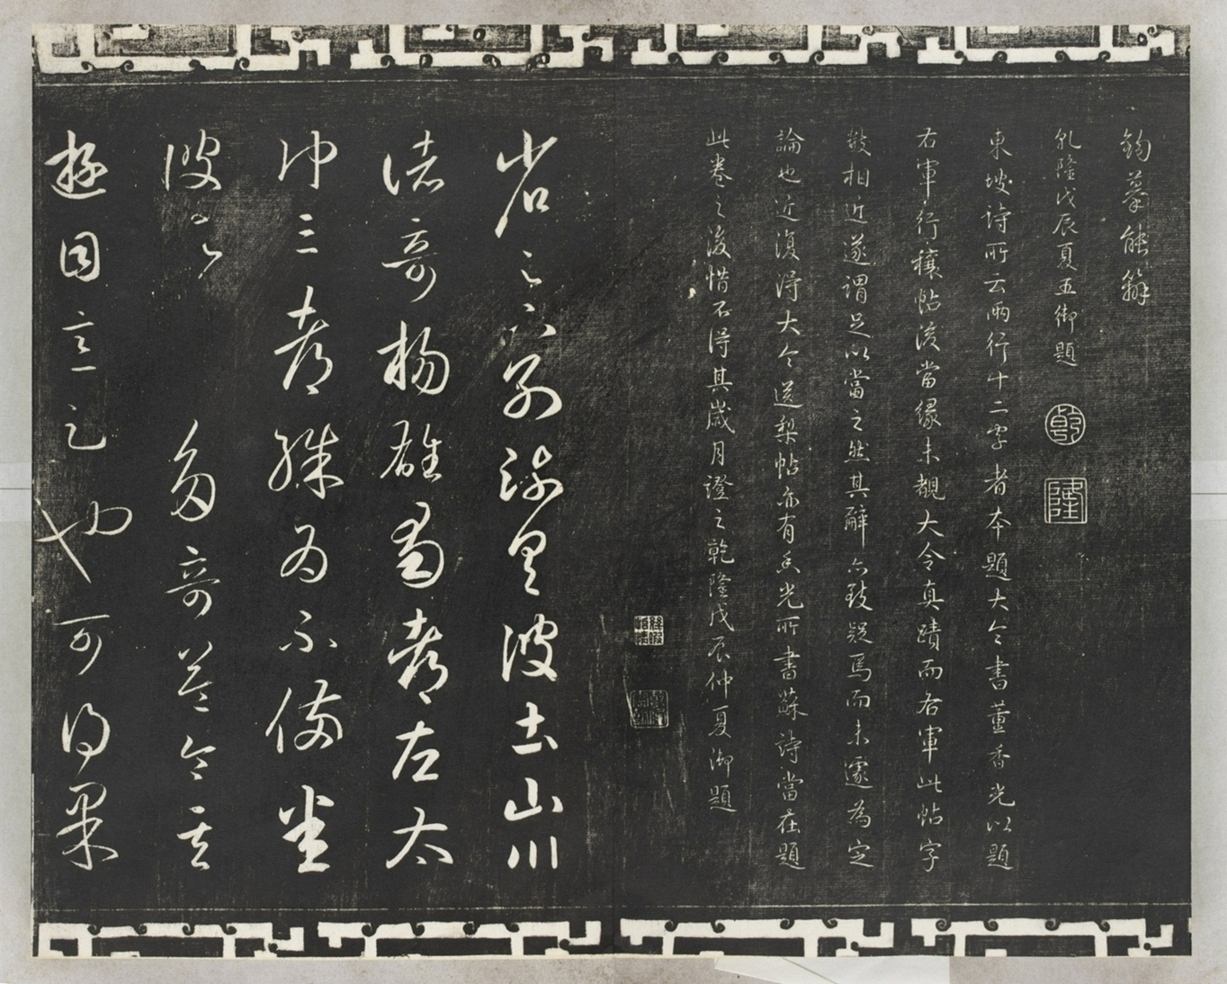 鈎摹能辦
乾隆戊辰夏五御題
乾
隆
東坡詩所云兩行十二字者本題大令書董香光以題
右軍行穰帖後當緣未覩大令真蹟而右軍此帖字
數相近遂謂足以當之然其辭致疑焉而未遽為定
論也近復得大令送梨帖亦有香光所書蘇詩當在題
此卷之後惜不得其歲月證之乾隆戊辰仲夏御題
省足下別疏具彼土山川
諸奇楊雄蜀都左太
沖三都殊為不備悉
彼故為多奇益令其
遊目意足也可得果